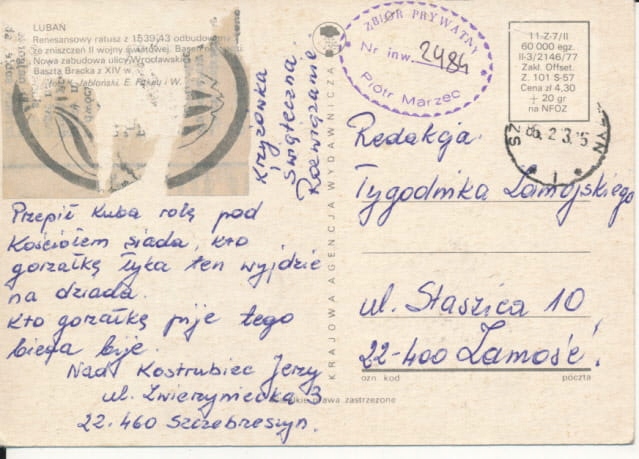 LUBAŃ
Renesansowy ratusz z 1539/43 odbudow
ze zniszczeń II wojny światowej. Base
Nowa zabudowa ulicy Wrocławskie
Baszta Bracka z XIV w.
Jabłoński, E. Pękały i W.
Krzyżówka
Świąteczna
Rozwiązanie
Przepił Kuba rolę pod
Kościołem siada, kto
gorzałkę łyka ten wyjdzie
na dziada.
Kto gorzałkę pije tego
bieda bije.
Nad Kostrubiec Jerzy
ul. Zwierzyniecka 3
22-460 Szczebrzeszyn.
KRAJOWA AGENCJA WYDAWNICZA
ZBIÓR PRYWATNY
Nr inw. 2484
Piotr Marzec
11-Z-7/II
60 000 egz.
II-3/2146/77
Zakł. Offset.
Z. 101 S-57
Cena zł 4,30
+ 20 gr
na NFOZ
Redakcja
Tygodnika Zamojskiego
ul. Staszica 10
22-400 Zamość
ozn kod poczta
prawa zastrzeżone